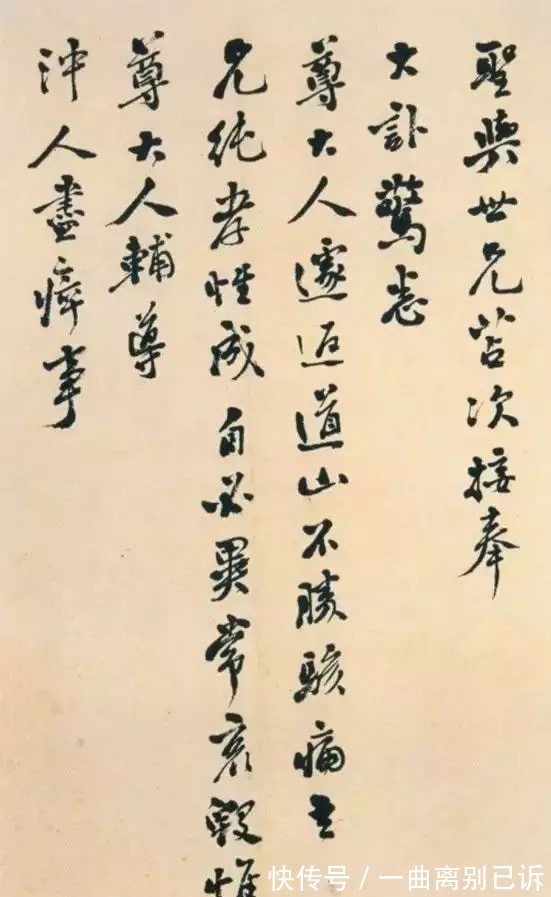 聖與世兄苫次接奉
大訃驚悉
尊大人遽返道山不勝駭痛吾
兄純孝性成自必異常哀毀惟
尊大人輔導
沖人盡瘁事
快传号/一曲离别已诉